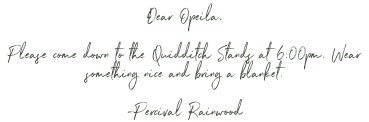 Dear Opeila,
Please come down to the Quidditch Stands at 6:00pm. Wear
something nice and bring a blanket.
-Percival Rainwood